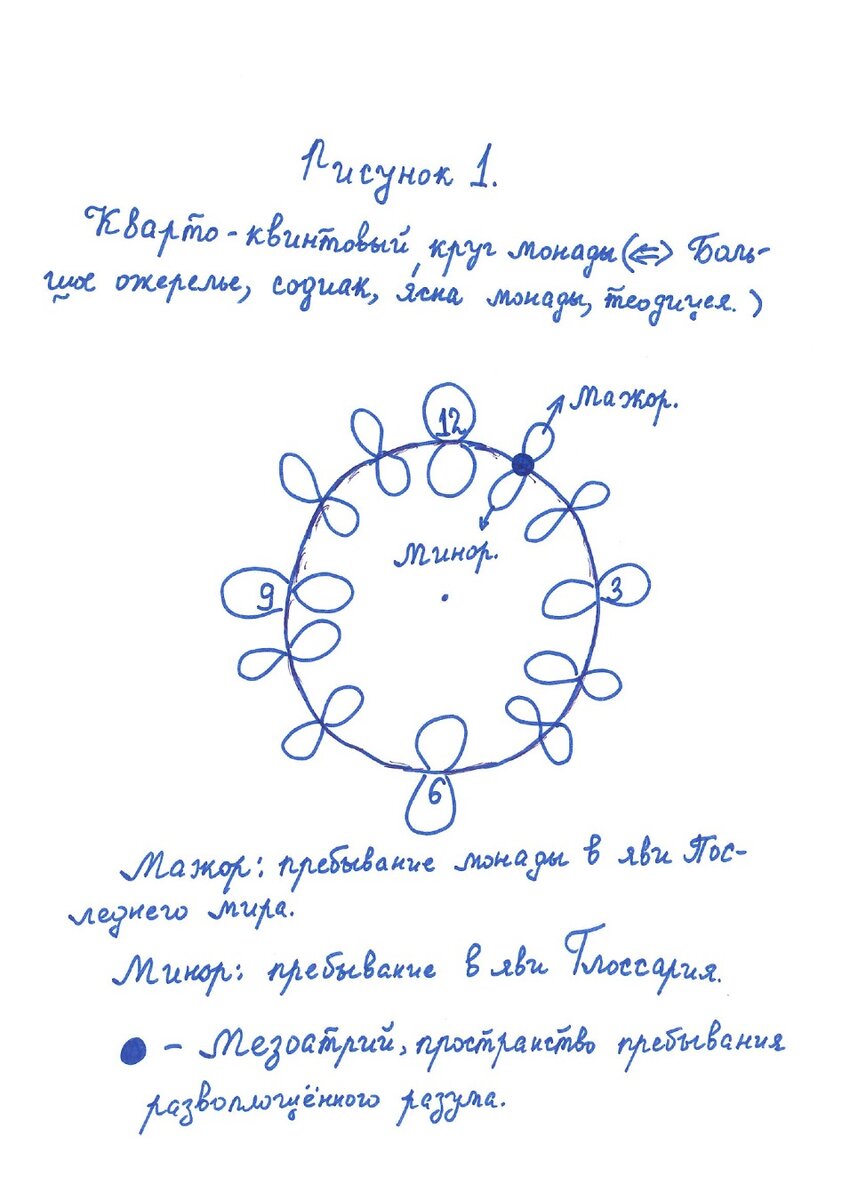 Рисунок 1.
Кварто-квинтовый круг монады (⇔ Боль-
шое ожерелье, содиак, я́сна монады, теодицея.)
Мажор.
12
Минор.
9
3
6
Мажор: пребывание монады в яви Пос-
леднего мира.
Минор: пребывание в яви Глоссария.
– Мезоатрий, пространство пребывания
развоплощённого разума.